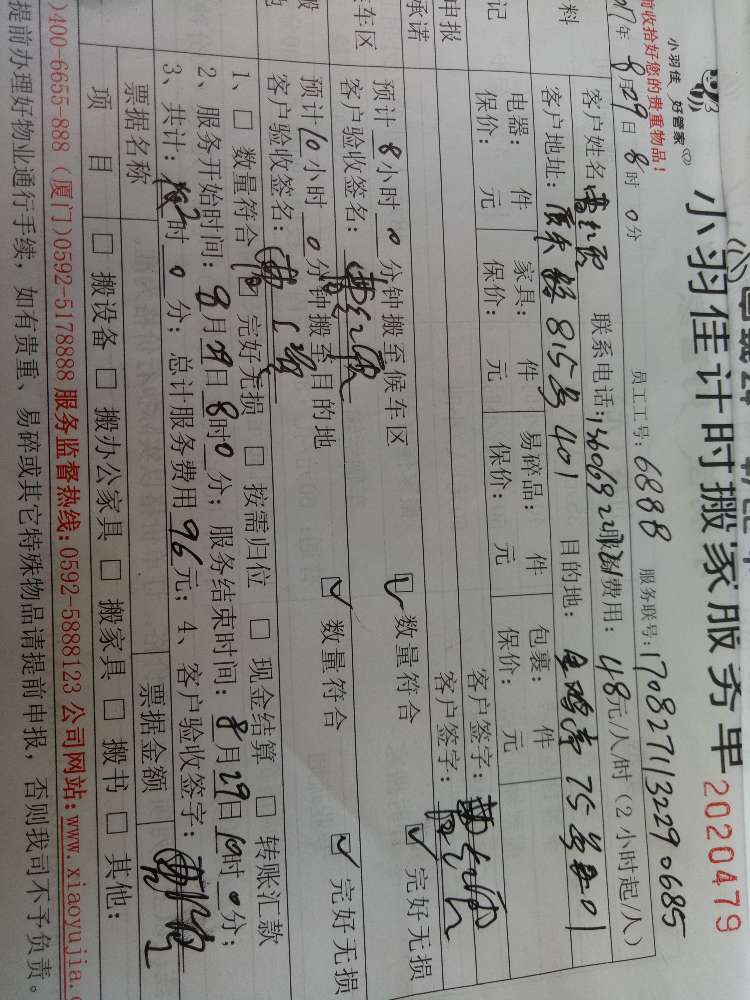 小羽佳 好管家
前收拾好您的贵重物品！
小羽佳计时搬家服务单 2020479
年8月29日8时0分 员工工号：688B 服务联号：170827113229 0685
客户姓名： 联系电话： 服务费用：48元/人/时（2小时起/人）
客户地址： 815号401 目的地： 75号
料
电器： 件 家具： 件 易碎品： 件 包裹： 件 客户签字：
保价： 元 保价： 元 保价： 元 保价： 元 客户签字：
记
申报
承诺
预计8小时0分钟搬至候车区 数量符合 完好无损
客户验收签名：
车区
预计10小时0分钟搬至目的地 数量符合 完好无损
客户验收签名：
1、□ 数量符合 □ 完好无损 □ 按需归位 □ 现金结算 □ 转账汇款
2、服务开始时间：8月29日8时0分；服务结束时间：8月29日10时0分；
3、共计： 时0分；总计服务费用96元；4、客户验收签字：
票据名称 票据金额
项目 □ 搬设备 □ 搬办公家具 □ 搬家具 □ 搬书 □ 其他：
)400-6655-888（厦门）0592-5178888 服务监督热线：0592-5888123 公司网站：www.xiaoyujia.c
提前办理好物业通行手续，如有贵重、易碎或其它特殊物品请提前申报，否则我司不予负责。